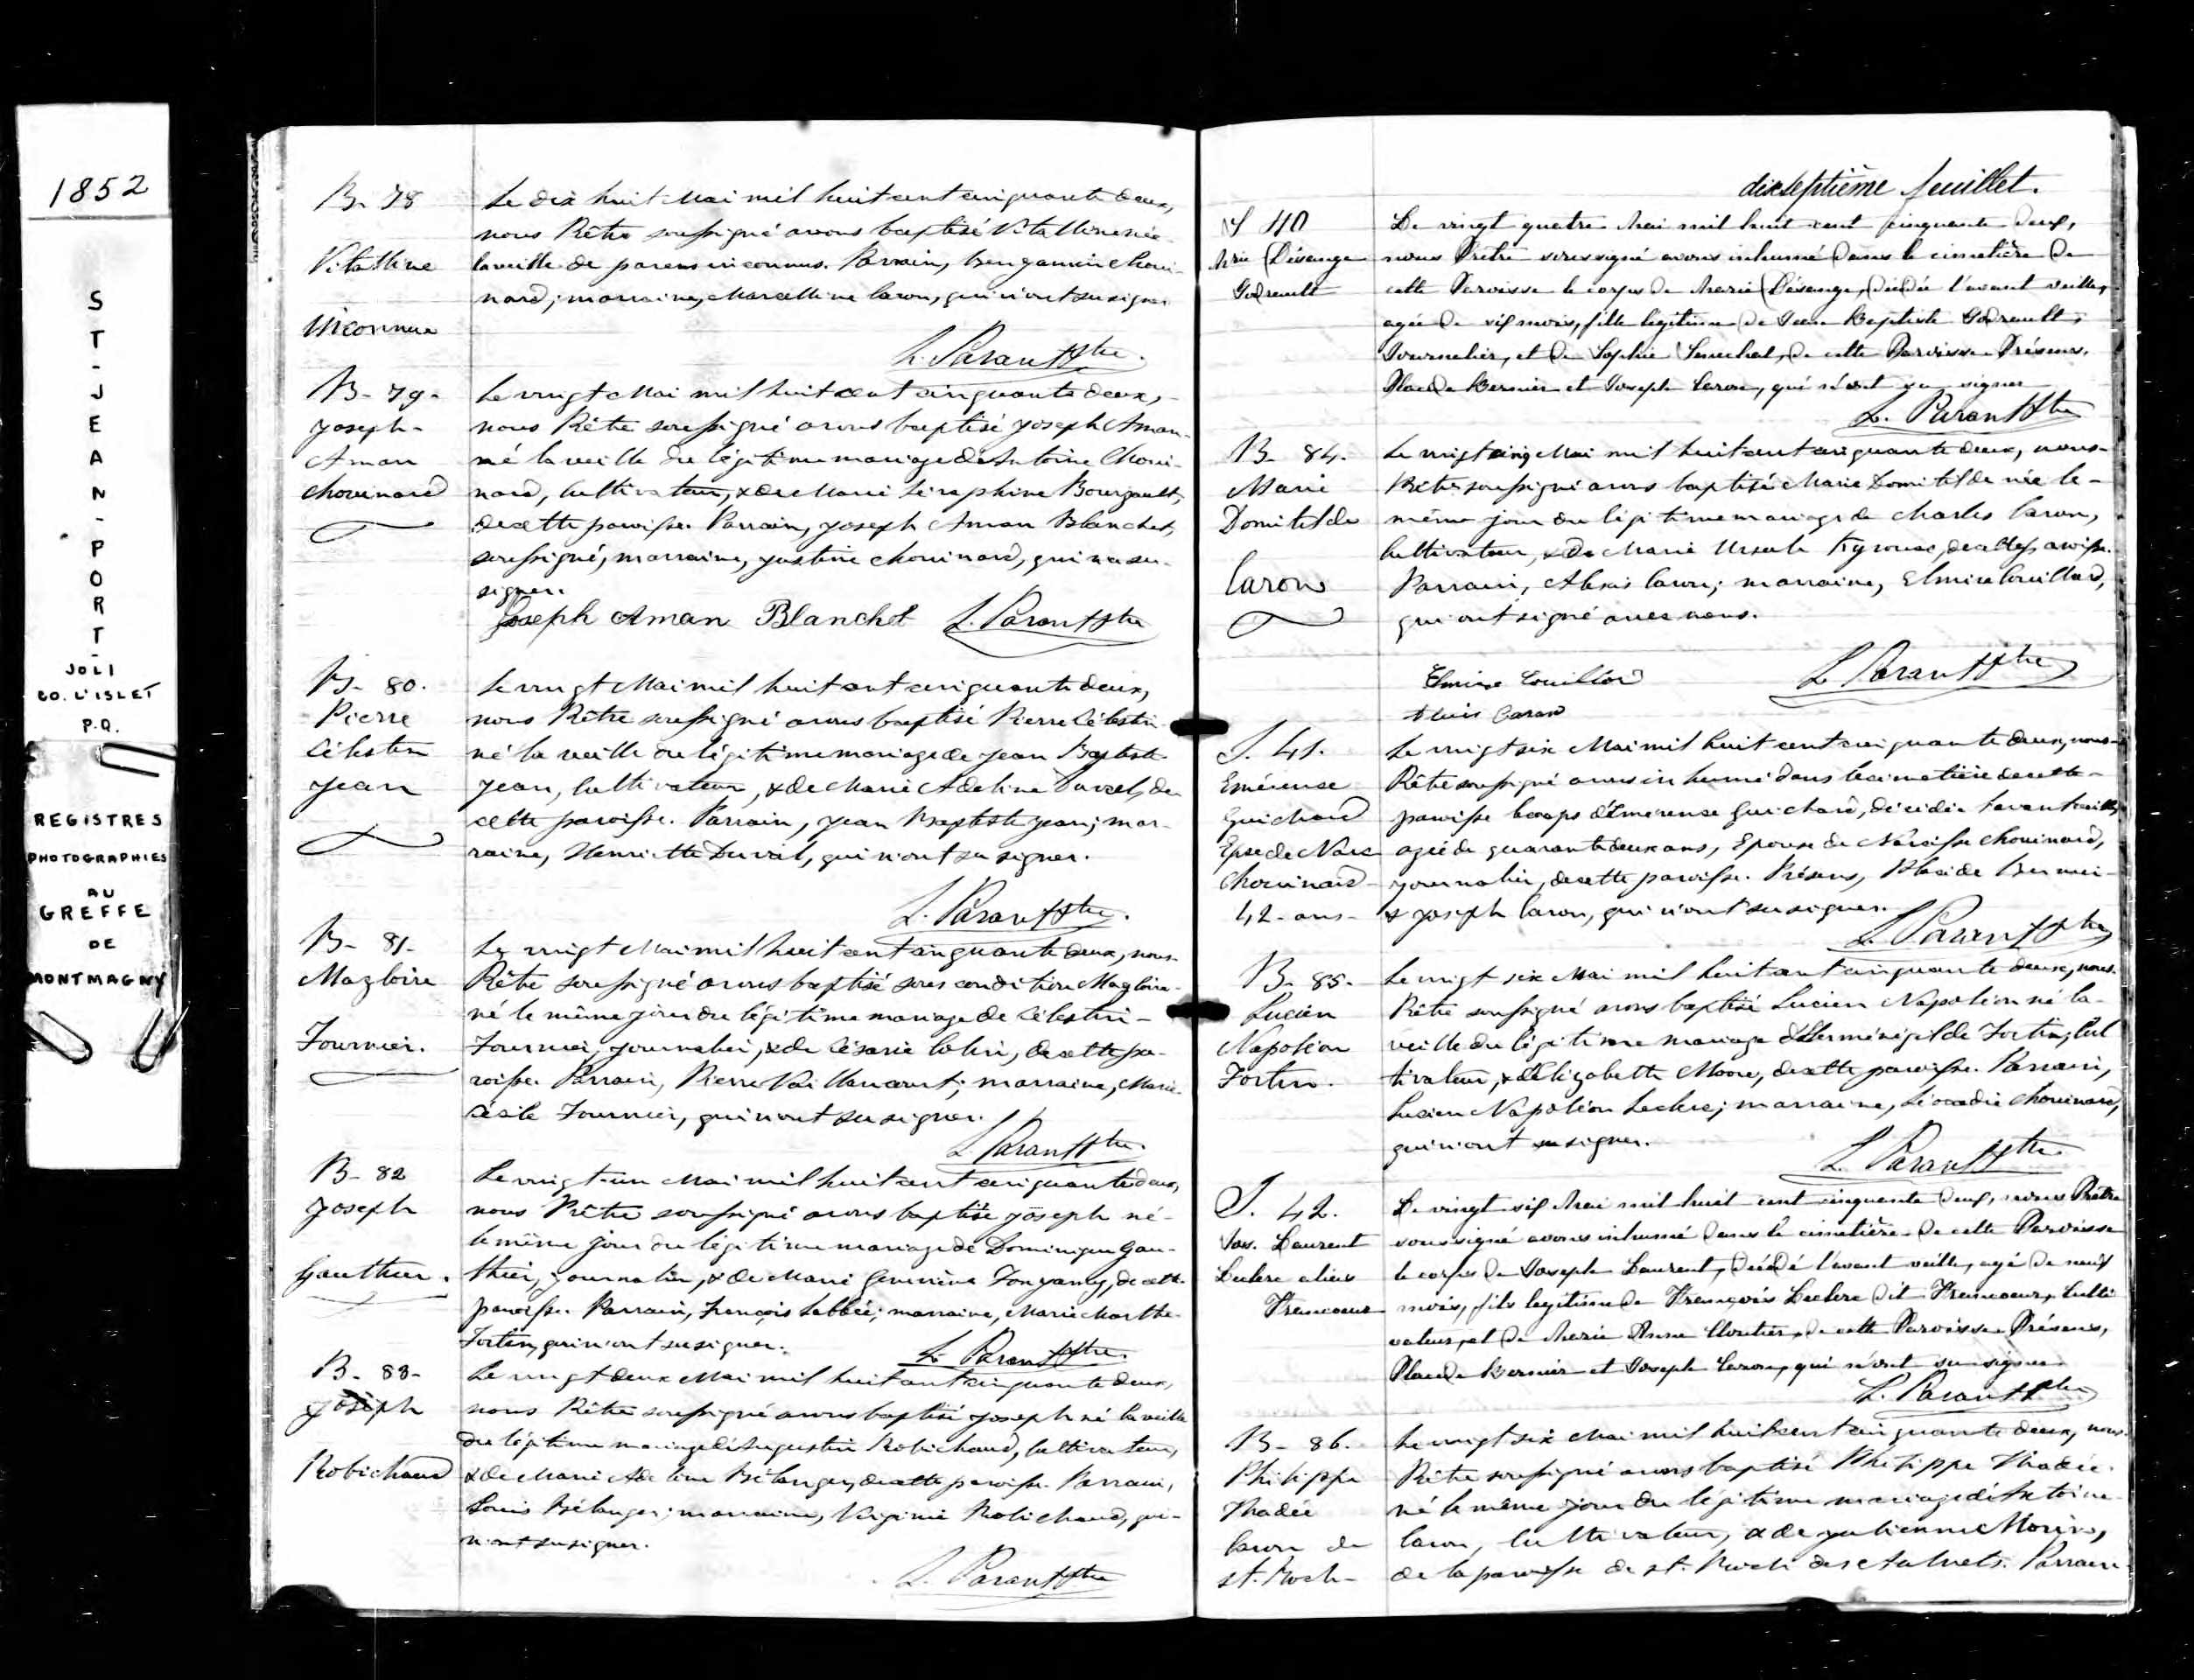 1852
ST-JEAN-PORT-
JOLI
CO. L'ISLET
P.Q.
REGISTRES
PHOTOGRAPHIES
AU
GREFFE
DE
MONTMAGNY
B- 78
Vitalline
inconnue
Le dix huit Mai mil huit cent cinquante deux,
nous Prêtre soussigné avons baptisé Vitalline née
la veille de parens inconnus. Parrain, Benjamin Choui-
nard; marraine, Marcelline Caron, qui n'ont su signer
L. Parant Ptre.
B- 79-
Joseph-
Aman
Chouinard
Le vingt Mai mil huit cent cinquante deux,
nous Prêtre soussigné avons baptisé Joseph Aman-
né la veille du légitime mariage d'Antoine Choui-
nard, cultivateur, & de Marie Séraphine Bourgault,
de cette paroisse. Parrain, Joseph Aman Blanchet,
soussigné, marraine, Justine Chouinard, qui n'a su-
signer.
Joseph Aman Blanchet L. Parant Ptre
B- 80.
Pierre
Célestin
Jean
Le vingt Mai mil huit cent cinquante deux,
nous Prêtre soussigné avons baptisé Pierre Célestin
né la veille du légitime mariage de Jean Baptiste
Jean, cultivateur, & de Marie Adeline Duval, de
cette paroisse. Parrain, Jean Baptiste Jean; mar-
raine, Henriette Duval, qui n'ont su signer.
L. Parant Ptre.
B- 81-
Magloire
Fournier.
Le vingt Mai mil huit cent cinquante deux, nous-
Prêtre soussigné avons baptisé sous condition Magloire-
né le même jour du légitime mariage de Célestin-
Fournier, journalier, & de Césarie Colin, de cette pa-
roisse. Parrain, Pierre Vaillancourt; marraine, Marie-
Cécile Fournier, qui n'ont su signer.
L. Parant Ptre.
B- 82
Joseph
Gauthier.
Le vingt-un Mai mil huit cent cinquante deux,
nous Prêtre soussigné avons baptisé Joseph né-
le même jour du légitime mariage de Dominique Gau-
thier, journalier, & de Marie Geneviève Fongamy, de cette
paroisse. Parrain, François Labbée; marraine, Marie Marthe
Fortin, qui n'ont su signer.
L. Parant Ptre.
B- 83-
Joseph
Robichaud
Le vingt deux Mai mil huit cent cinquante deux,
nous Prêtre soussigné avons baptisé Joseph né la veille
du légitime mariage d'Augustin Robichaud, cultivateur,
& de Marie Adeline Bélanger, de cette paroisse. Parrain,
Louis Bélanger; marraine, Virginie Robichaud, qui-
n'ont su signer.
L. Parant Ptre
dixseptième feuillet.
S 40
Marie Désange
Godreault
Le vingt quatre Mai mil huit cent cinquante deux,
nous Prêtre soussigné avons inhumé dans le cimetière de
cette Paroisse le corps de Marie Désange, décédée l'avant veille,
agée de six mois, fille légitime de Jean Baptiste Godreault,
Journalier, et de Sophie Senechal, de cette Paroisse. Présens,
Placide Bernier et Joseph Caron, qui n'ont su signer
L. Parant Ptre
B- 84.
Marie
Domitilde
Caron
Le vingt cinq Mai mil huit cent cinquante deux, nous-
Prêtre soussigné avons baptisé Marie Domitilde née le-
même jour du légitime mariage de Charles Caron,
cultivateur, & de Marie Ursule Kyrouac, de cette paroisse.
Parrain, Alexis Caron; marraine, Elmire Couillard,
qui ont signé avec nous.
Elmire Couillard L. Parant Ptre
Alexis Caron
S. 41.
Emérence
Guichard
Epse de Narc
Chouinard-
42- ans-
Le vingt six Mai mil huit cent cinquante deux, nous-
Prêtre soussigné avons inhumé dans le cimetière de cette-
paroisse le corps d'Emérence Guichard, décédée l'avant veille,
agée de quarante deux ans, Epouse de Narcisse Chouinard,
journalier, de cette paroisse. Présens, Placide Bernier-
& Joseph Caron, qui n'ont su signer.
L. Parant Ptre
B- 85-
Lucien
Napoléon
Fortin.
Le vingt six Mai mil huit cent cinquante deux, nous-
Prêtre soussigné avons baptisé Lucien Napoléon né la-
veille du légitime mariage d'Herménégilde Fortin, cul
tivateur, & d'Elizabeth Moore, de cette paroisse. Parrain,
Lucien Napoléon Leclerc; marraine, Léocadie Chouinard,
qui n'ont su signer.
L. Parant Ptre
S. 42.
Jos. Laurent
Leclerc alias
Francoeur
Le vingt six Mai mil huit cent cinquante deux, nous Prêtre
soussigné avons inhumé dans le cimetière de cette Paroisse
le corps de Joseph Laurent, décédé l'avant veille, agé de neuf
mois, fils legitime de François Leclerc dit Francoeur, Culti
vateur, et de Marie Anne Cloutier, de cette Paroisse. Présens,
Placide Bernier et Joseph Caron, qui n'ont su signer
L. Parant Ptre
B- 86.
Philippe
Thadée
Caron de
St. Roch-
Le vingt six Mai mil huit cent cinquante deux, nous-
Prêtre soussigné avons baptisé Philippe Thadée-
né le même jour du légitime mariage d'Antoine-
Caron, cultivateur, & de Julienne Morin,
de la paroisse de St. Roch des Aulnets. Parrain-